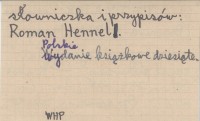 słowniczka i przypisów:
Roman Hennel.
Polskie
Wydanie książkowe dziesiąte.
WHP